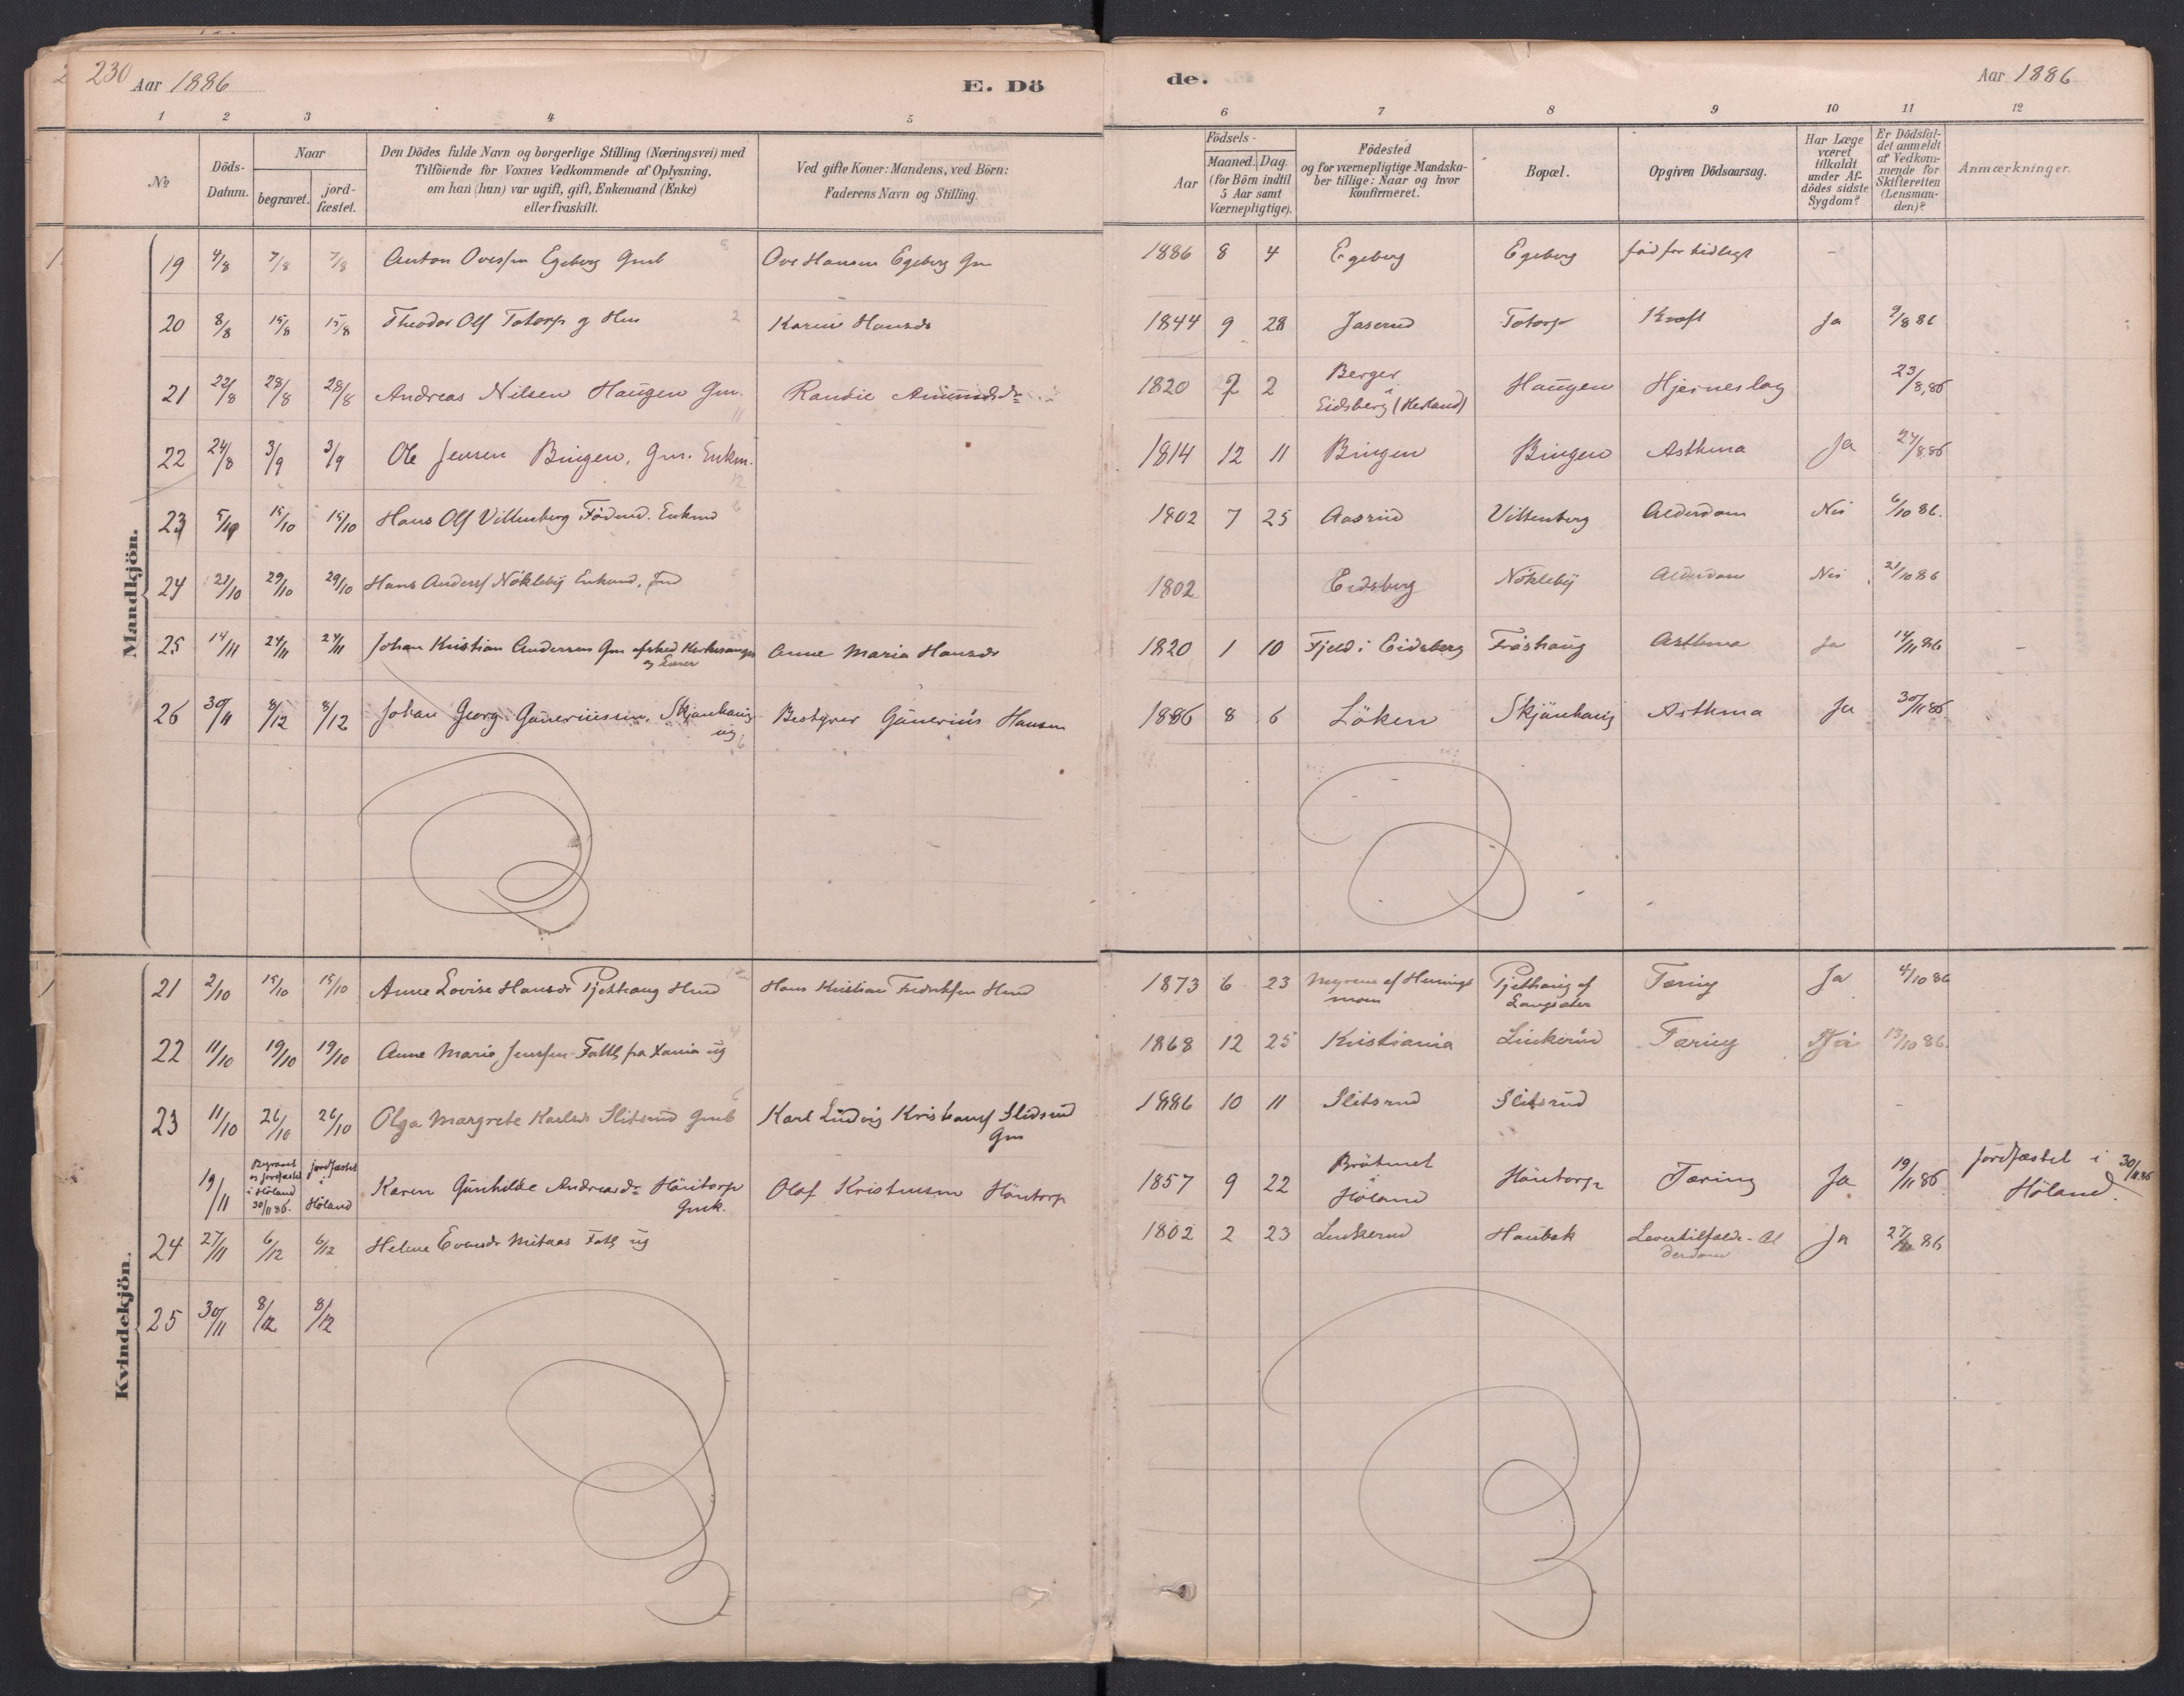 230 Aar 1886 E. Dö de. Aar 1886
1 2 3 4 5 6 7 8 9 10 11 12
No
Döds-Datum.
Naar
begravet.
jord-fæstet.
Den Dödes fulde Navn og borgerlige Stilling (Næringsvei) med
Tilföiende for Voxnes Vedkommende af Oplysning,
om han (hun) var ugift, gift, Enkemand (Enke)
eller fraskilt.
Ved gifte Koner: Mandens, ved Börn:
Faderens Navn og Stilling.
Aar
Födsels-
Maaned. Dag.
(for Börn indtil
5 Aar samt
Værnepligtige).
Födested
og for værnepligtige Mandska-
ber tillige: Naar og hvor
konfirmeret.
Bopæl.
Opgiven Dödsaarsag.
Har Læge
været
tilkaldt
under Af-
dödes sidste
Sygdom?
Er Dödsfal-
det anmeldt
af Vedkom-
mende for
Skifteretten
(Lensman-
den)?
Anmærkninger.
Mandkjön.
19 4/8 7/8 7/8 Anton Ovessen Egeberg Gmb Ove Hansen Egeberg Gm 1886 8 4 Egeberg Egeberg född for tidligt -
20 8/8 15/8 15/8 Theodor Ols Totorp g Hus Karin Hansdr 1844 9 28 Jaserud Totorp Kræft Ja 9/8 86
21 22/8 28/8 28/8 Andreas Nilsen Haugen Gm. Randie Amundsdr 1820 7 2 Berger i Eidsberg (Herland) Haugen Hjerneslag 23/8.86
22 24/8 3/9 3/9 Ole Jensen Bingen, Gm. Enkm. 1814 12 11 Bingen Bingen Asthma Ja 24/8.86
23 5/10 15/10 15/10 Hans Ols Vittenberg Födmd. Enkmd 1802 7 25 Aasrud Vittenberg Alderdom Nei 6/10 86.
24 21/10 29/10 29/10 Hans Anders Nökleby Enkmd, Fmd 1802 Eidsberg Nökleby Alderdom Nei 21/10 86
25 14/11 24/11 24/11 Johan Kristian Andersen Gm afsked Kirkesanger og Lærer Anne Maria Hansdr 1820 1 10 Fjeld i Eidsberg Fröshaug Asthma Ja 14/11 86
26 30/11 8/12 8/12 Johan Georg Guneriussen, Skjönhaug ug. Bestyrer Gunerius Hansen 1886 8 6 Löken Skjönhaug Asthma Ja 30/11 86.
Kvindekjön.
21 2/10 15/10 15/10 Anne Lovise Hansdr Pjetthaug Hmd Hans Kristian Fredriksen Hmd 1873 6 23 Myrene af Hennings moen Pjetthaug af Langsæter Tæring Ja 4/10 86
22 11/10 19/10 19/10 Anne Marie Jenssen Fattl, fra Xania ug 1868 12 25 Kristiania Linkerud Tæring Ja 13/10 86.
23 11/10 26/10 26/10 Olga Margrete Karlsdr Slitsrud Gmb Karl Ludvig Kristians Slidsrud Gm 1886 10 11 Slitsrud Slitsrud -
19/11 Begravet og jordfæstet i Höland 30/11 86. jordfæstet i Höland Karen Gunhilde Andreasdr Höntorp Gmk. Olaf Kristensen Höntorp 1857 9 22 Bråtmet i Höland Höntorp Tæring Ja 19/11 86 jordfæstet i Höland. 30/11.86
24 27/11 6/12 6/12 Helene Evensdr Mitaas Fatl, ug 1802 2 23 Linkerud Haubæk Levertilfælde - Alderdom Ja 27/11 86
25 30/11 8/12 8/12